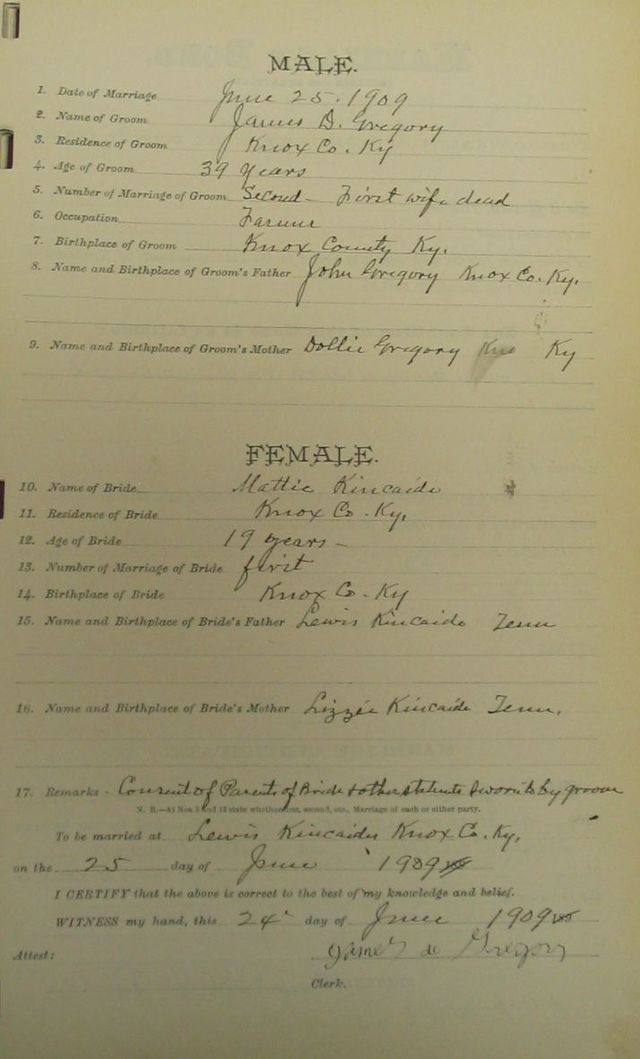 MALE.
1. Date of Marriage June 25. 1909
2. Name of Groom James D. Gregory
3. Residence of Groom Knox Co. Ky
4. Age of Groom 39 years
5. Number of Marriage of Groom Second - First wife dead
6. Occupation Farmer
7. Birthplace of Groom Knox County Ky.
8. Name and Birthplace of Groom's Father John Gregory Knox Co. Ky.
9. Name and Birthplace of Groom's Mother Dollie Gregory Ky
FEMALE.
10. Name of Bride Mattie Kincaide
11. Residence of Bride Knox Co. Ky.
12. Age of Bride 19 years -
13. Number of Marriage of Bride first
14. Birthplace of Bride Knox Co. Ky
15. Name and Birthplace of Bride's Father Lewis Kincaide Tenn
16. Name and Birthplace of Bride's Mother Lizzie Kincaide Tenn.
17. Remarks - Consent of Parents of Bride & other statements sworn to by groom
N. B.—At Nos. 5 and 13 state whether first, second, etc., Marriage of each or either party.
To be married at Lewis Kincaides Knox Co. Ky.
on the 25 day of June 1909
I CERTIFY that the above is correct to the best of my knowledge and belief.
WITNESS my hand, this 24 day of June 1909
Attest: James de Gregory
Clerk.